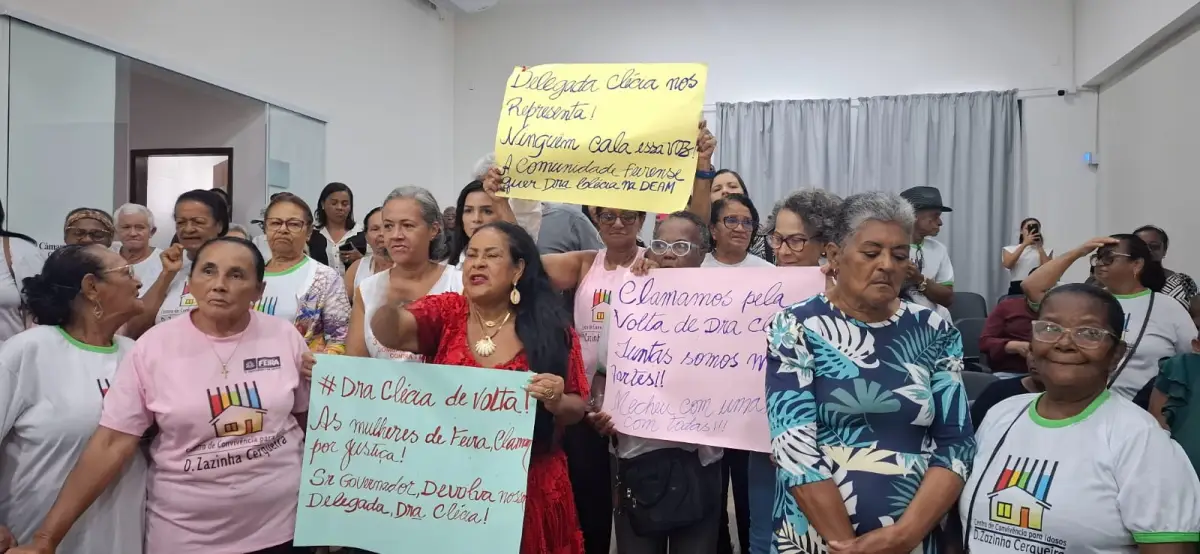 Delegada Clécia nos
Representa!
Ninguém cala essa voz!
A Comunidade Feirense
quer Dra Clécia na DEAM
Clamamos pela
Volta de Dra
Juntas somos
fortes!!
Mecheu com uma
com todas!!!
# Dra Clécia de Volta!
As mulheres de Feira, Clamam
por justiça!
Sr Governador, Devolva nossa
Delegada, Dra Clécia!
FEIRA
Centro de Convivência para
D. Zazinha Cerqueira
Centro de Convivência para Idosos
D. Zazinha Cerqueira
Câma